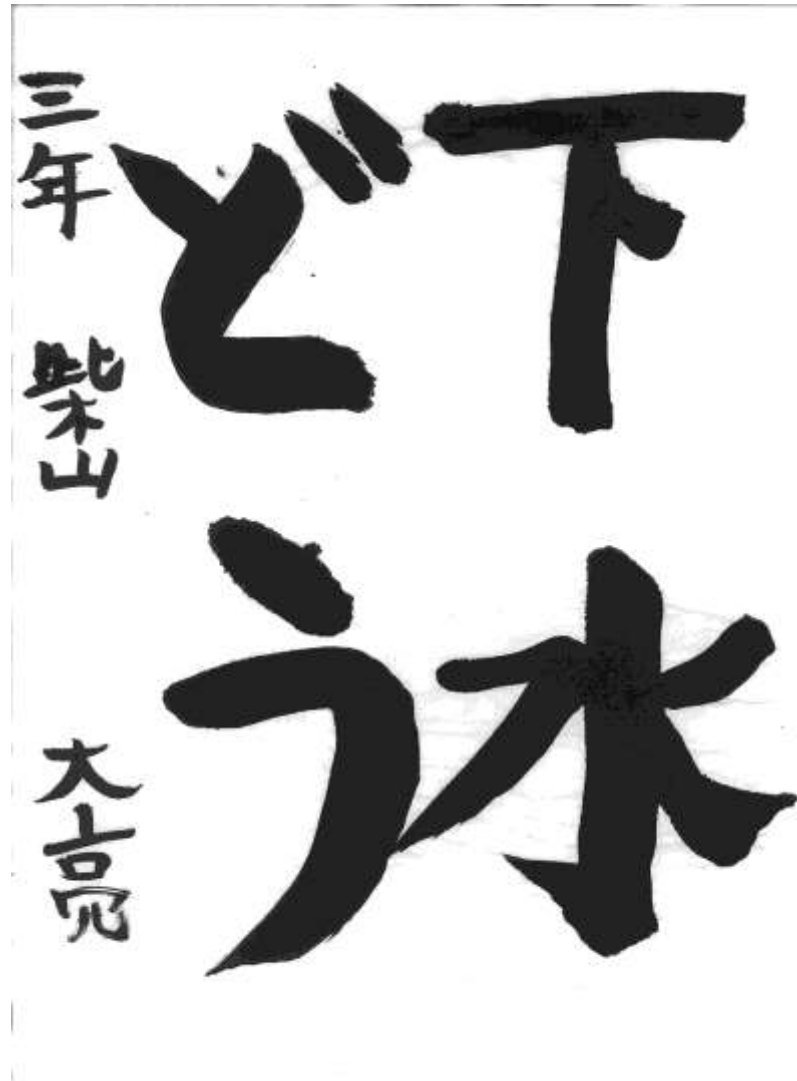 下水
どう
三年 柴山 大亮